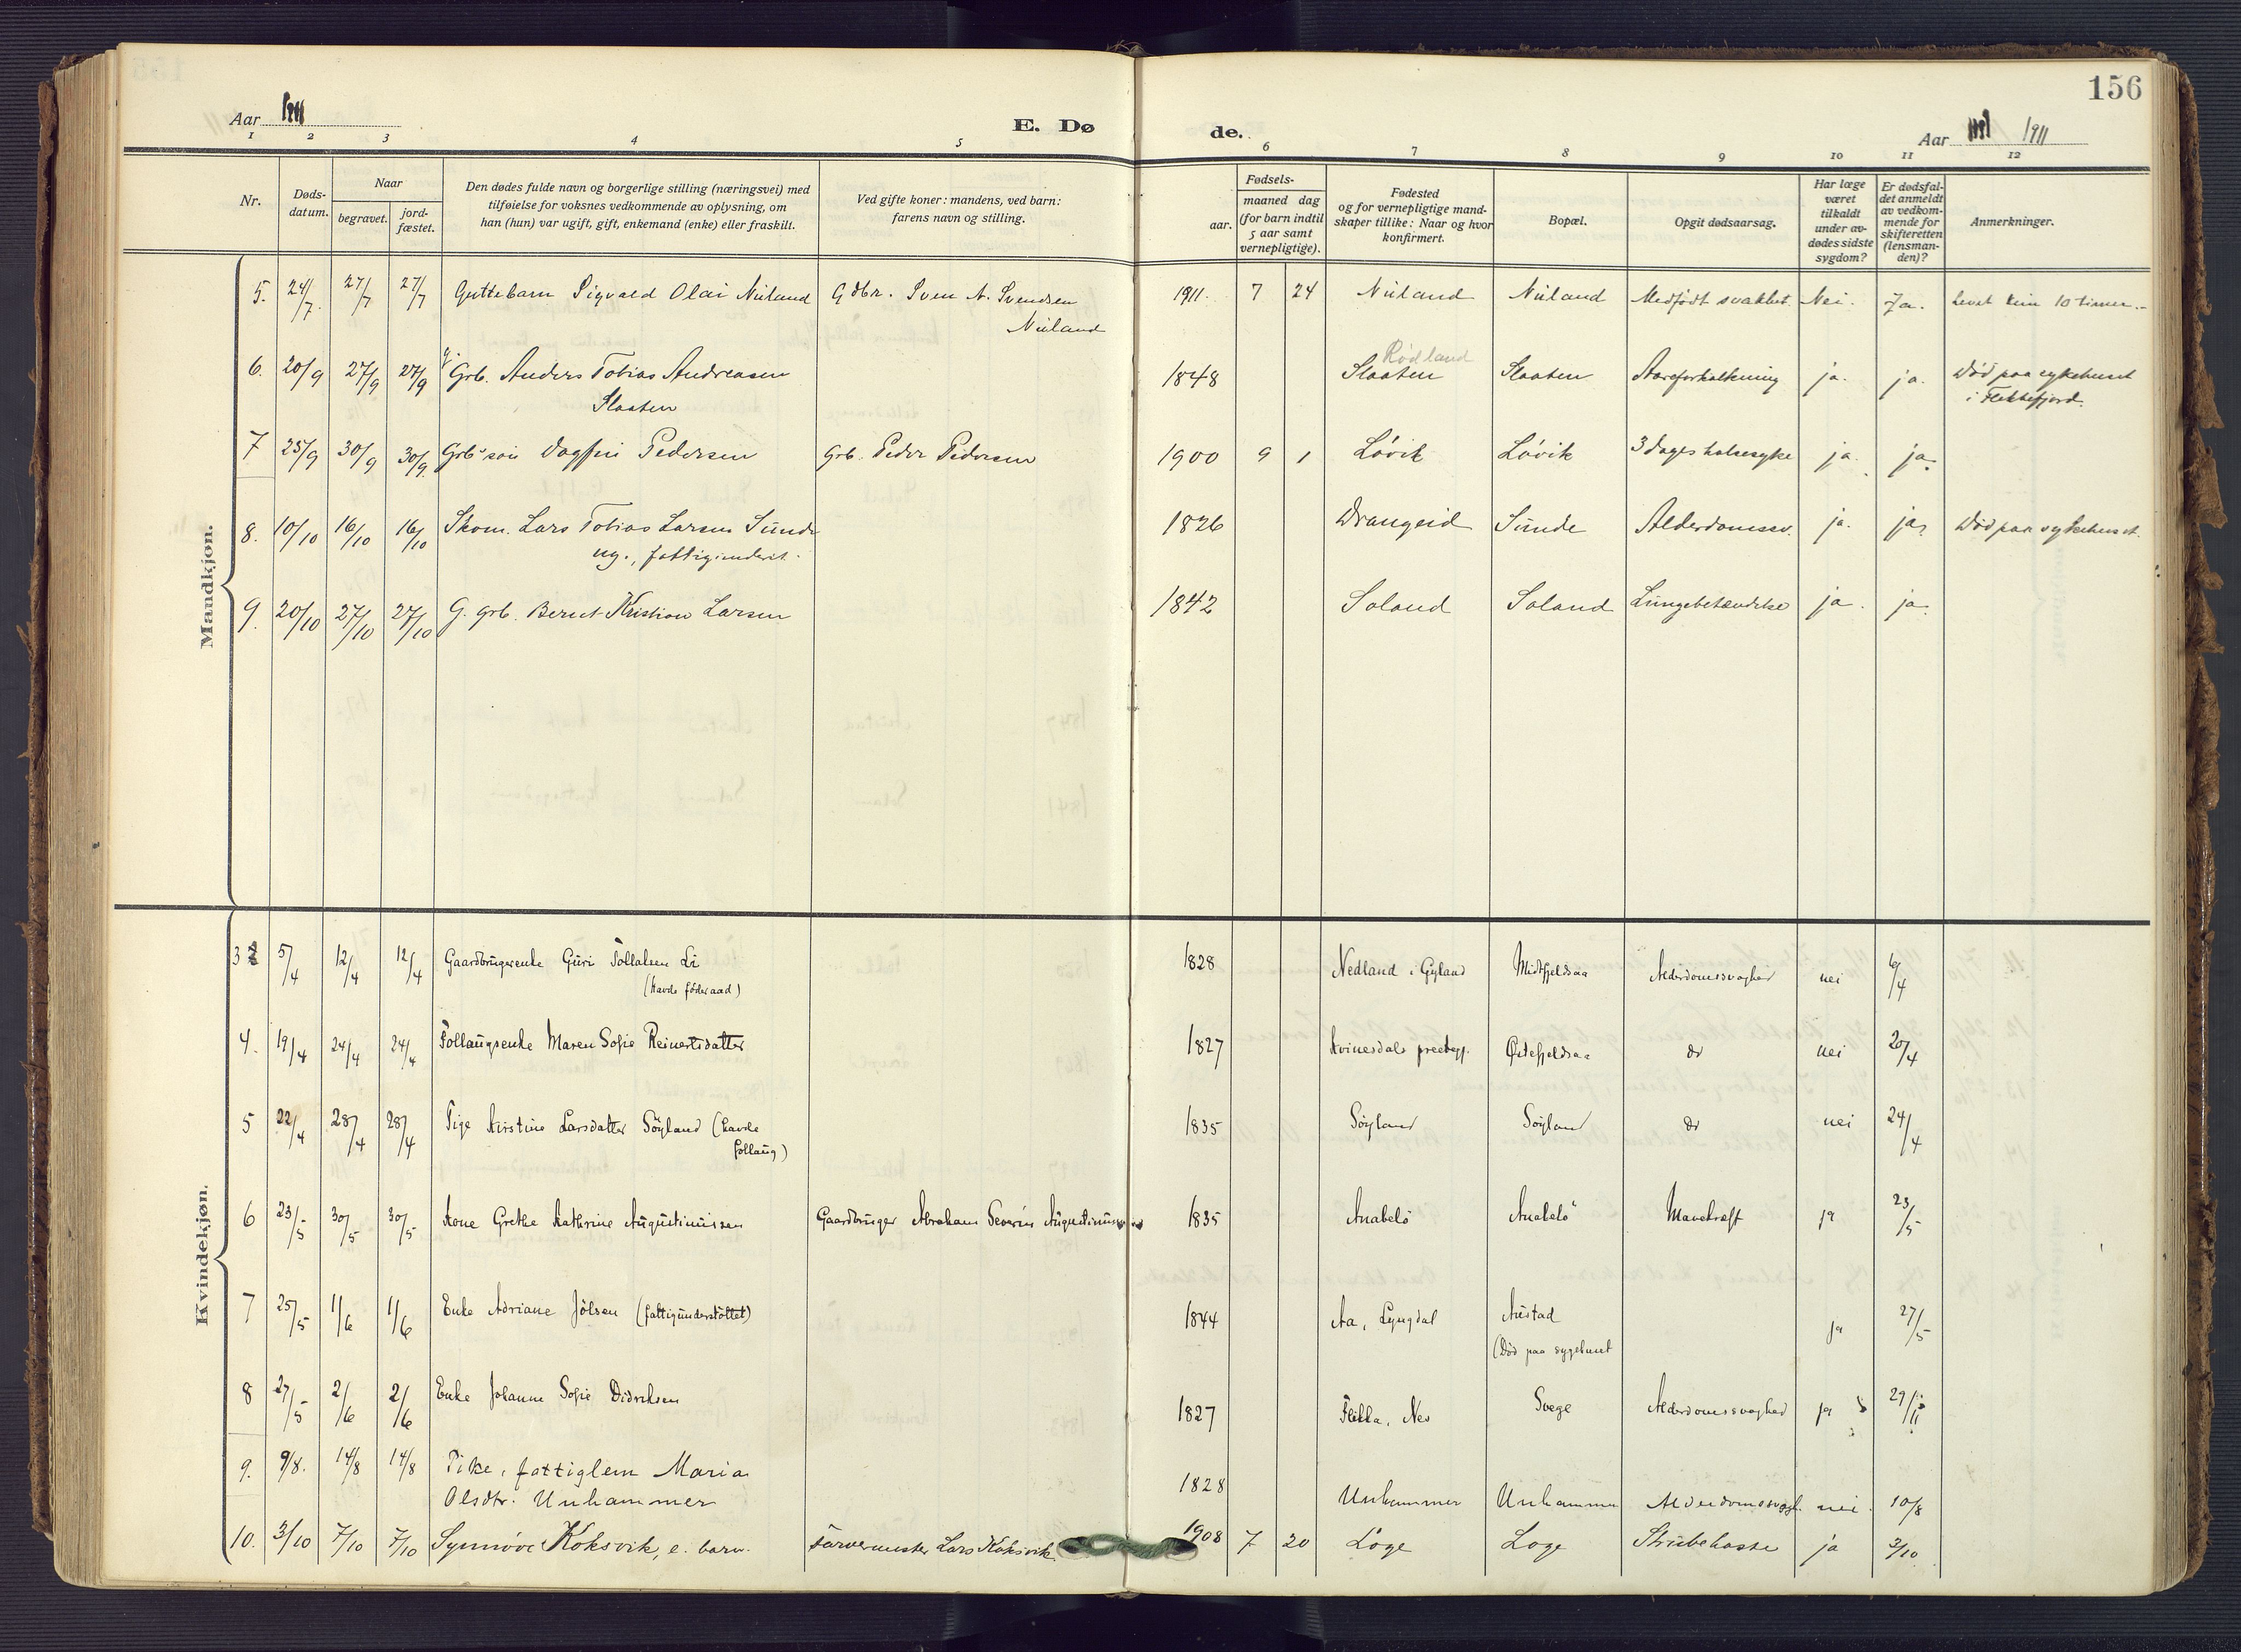 156
Aar 1911
E. Dø
de.
Aar 1911
1 2 3 4 5 6 7 8 9 10 11 12
Nr.
Døds-
datum.
Naar
begravet.
jord-
fæstet.
Den dødes fulde navn og borgerlige stilling (næringsvei) med
tilføielse for voksnes vedkommende av oplysning, om
han (hun) var ugift, gift, enkemand (enke) eller fraskilt.
Ved gifte koner: mandens, ved barn:
farens navn og stilling.
Fødsels-
aar.
maaned dag
(for barn indtil
5 aar samt
vernepligtige).
Fødested
og for vernepligtige mand-
skaper tillike: Naar og hvor
konfirmert.
Bopæl.
Opgit dødsaarsag.
Har læge
været
tilkaldt
under av-
dødes sidste
sygdom?
Er dødsfal-
det anmeldt
av vedkom-
mende for
skifteretten
(lensman-
den)?
Anmerkninger.
Mandkjøn.
5. 24/7 27/7 27/7 Guttebarn Sigvald Olai Nuland Gdbr. Sven A. Svendsen 1911. 7 24 Nuland Nuland Medfødt svakhet. Nei. Ja. Levet kun 10 timer.
Nuland
Rødland
6. 20/9 27/9 27/9 g. Grb. Anders Tobias Andreasen 1848 Slaaten Slaaten Aareforkalkning ja. ja. Død paa sykehuset
Slaaten i Flekkefjord.
7 25/9 30/9 30/9 Grb's søn Dagfin Pedersen Grb. Peder Pedersen 1900 9 1 Løvik Løvik 3 dages halssyke ja. ja.
8. 10/10 16/10 16/10 Skom. Lars Tobias Larsen Sunde 1826 Drangeid Sunde Alderdomssv. ja. ja. Død paa sykehuset.
ug., fattigunderst.
9. 20/10 27/10 27/10 G. grb. Bernt Kristian Larsen 1842 Soland Soland Lungebetændelse ja. ja.
Kvindekjøn.
3 5/4 12/4 12/4 Gaardbrugerenke Guri Tollaksen Li 1828 Nedland i Gyland Midtfjeldsaa Alderdomssvaghed nei 6/4
(havde føderaad)
4. 19/4 24/4 24/4 Follaugsenke Maren Sofie Reinertsdatter 1827 Kvinesdals prestegj. Østefjeldsaa do nei 20/4
5 22/4 28/4 28/4 Pige Kirstine Larsdatter Søyland (havde 1835 Søyland Søyland do nei 24/4
follaug)
6 23/5 30/5 30/5 Kone Grethe Kathrine Augustinussen Gaardbruger Abraham Severin Augustinussen 1835 Anabelø Anabelø Mavekræft ja 23/5
7 25/5 1/6 1/6 Enke Adriane Jølsen (fattigunderstøttet) 1844 Aa, Lyngdal Austad ja 27/5
(Død paa sygehuset
8 27/5 2/6 2/6 Enke Johanne Sofie Didriksen 1827 Flikka, Nes Svege Alderdomssvaghed ja 29/5
9. 9/8. 14/8 14/8 Pike, fattiglem Maria
Olsdtr. Unhammer 1828 Unhammer Unhammer Alderdomssvagh. nei. 10/8
10. 3/10 7/10 7/10 Synnøve Koksvik, e. barn. Farvermester Lars Koksvik 1908 7 20 Loge Loge Strubehoste ja 3/10